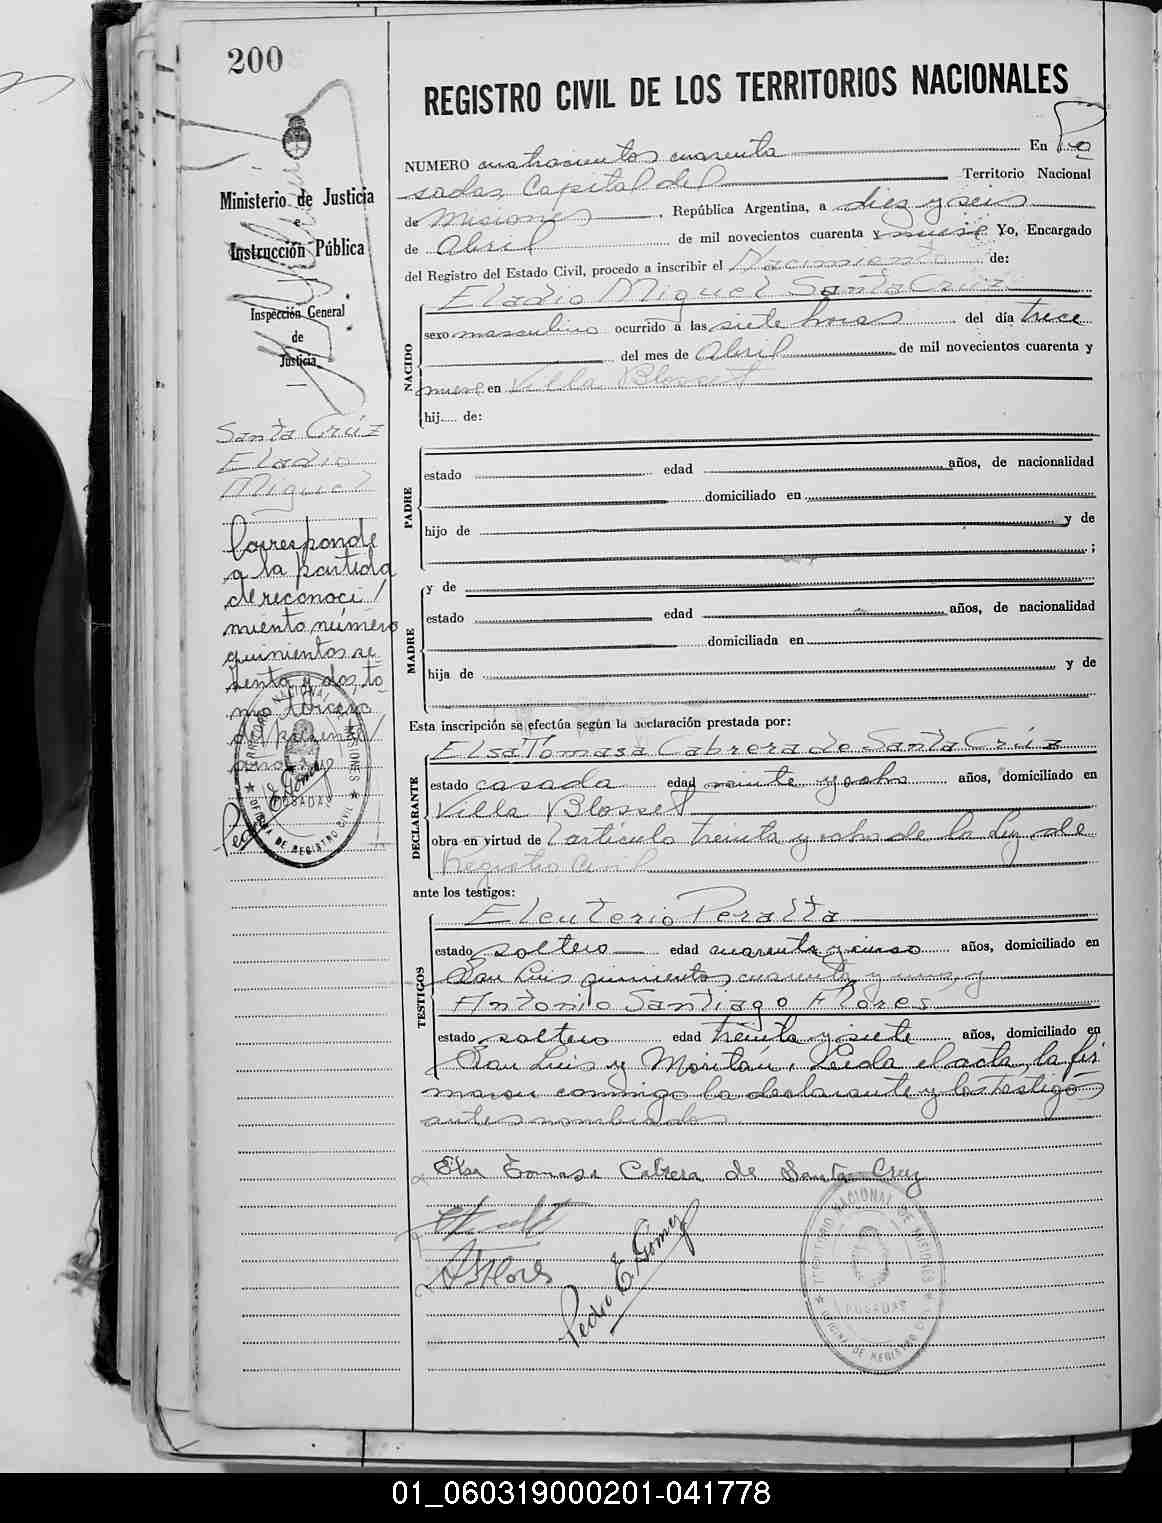 200
REGISTRO CIVIL DE LOS TERRITORIOS NACIONALES
Ministerio de Justicia
e
Instrucción Pública
Inspección General
de
Justicia
Santa Crúz
Eladio
Miguel
Corresponde
a la partida
de reconoci/
miento número
quinientos se
tenta y dos, to
mo tercero
del presente/
Pedro E. Gómez
TERRITORIO NACIONAL DE MISIONES
POSADAS
OFICINA DE REGISTRO CIVIL
NUMERO cuatrocientos cuarenta En Po
sadas, Capital del Territorio Nacional
de Misiones, República Argentina, a diez y seis
de Abril de mil novecientos cuarenta y nueve Yo, Encargado
del Registro del Estado Civil, procedo a inscribir el Nacimiento de:
NACIDO
Eladio Miguel Santa Crúz
sexo masculino ocurrido a las siete horas del día trece
del mes de Abril de mil novecientos cuarenta y
nueve en Villa Blosset
hij.... de:
PADRE
estado edad años, de nacionalidad
domiciliado en
hijo de y de
;
MADRE
y de
estado edad años, de nacionalidad
domiciliada en
hija de y de
Esta inscripción se efectúa según la declaración prestada por:
DECLARANTE
Elsa Tomasa Cabrera de Santa Crúz
estado casada edad veinte y ocho años, domiciliado en
Villa Blosset
obra en virtud de l artículo treinta y ocho de la Ley de
Registro Civil
ante los testigos:
TESTIGOS
Eleuterio Peralta
estado soltero edad cuarenta y cinco años, domiciliado en
San Luis quinientos cuarenta y uno, y
Antonio Santiago Flores
estado soltero edad treinta y siete años, domiciliado en
San Luis y Moritán. Leida el acta, la fir
maron conmigo la declarante y los testigos
antes nombrados
Elsa Tomasa Cabrera de Santa Cruz
ASFlores
Pedro E. Gómez
TERRITORIO NACIONAL DE MISIONES
POSADAS
OFICINA DE REGISTRO CIVIL
01_060319000201-041778